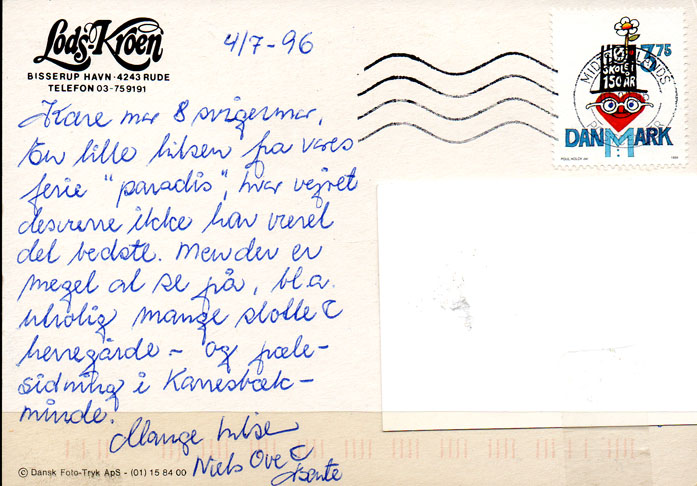 Lods-Kroen
BISSERUP HAVN · 4243 RUDE
TELEFON 03-759191
4/7-96
Kære mor & svigermor,
En lille hilsen fra vores
ferie "paradis", hvor vejret
desværre ikke har været
det bedste. Men der er
meget at se på, bl.a.
utrolig mange slotte &
herregårde - og pæle-
sidning i Karrebæk-
minde.
Mange hilsner
Niels Ove &
Bente
© Dansk Foto-Tryk ApS - (01) 15 84 00
3.75
SKOLE
150 ÅR
DANMARK
1994